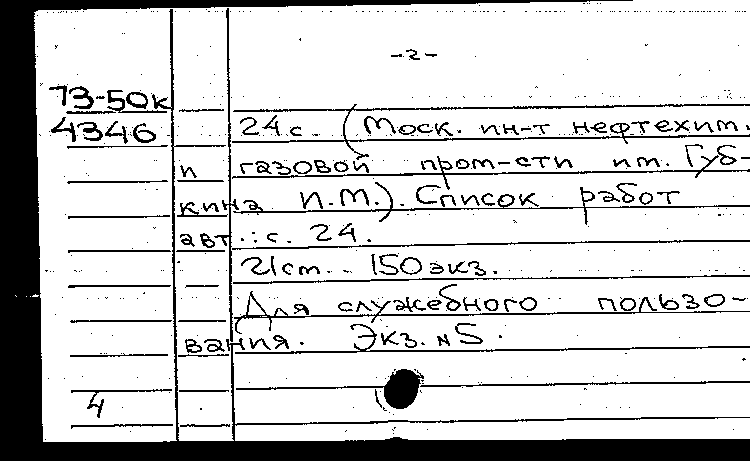 -2-
73-50к
4346 24с. (Моск. ин-т нефтехим.
и газовой пром-сти им. Губ-
кина И.М.). Список работ
авт.: с. 24.
21см. 150 экз.
Для служебного пользо-
вания. Экз. №5.
4